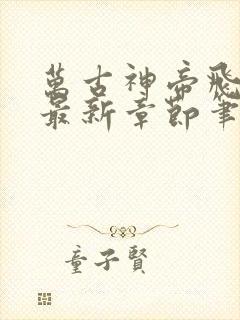 萬古神帝飛
最新章節筆
童子賢